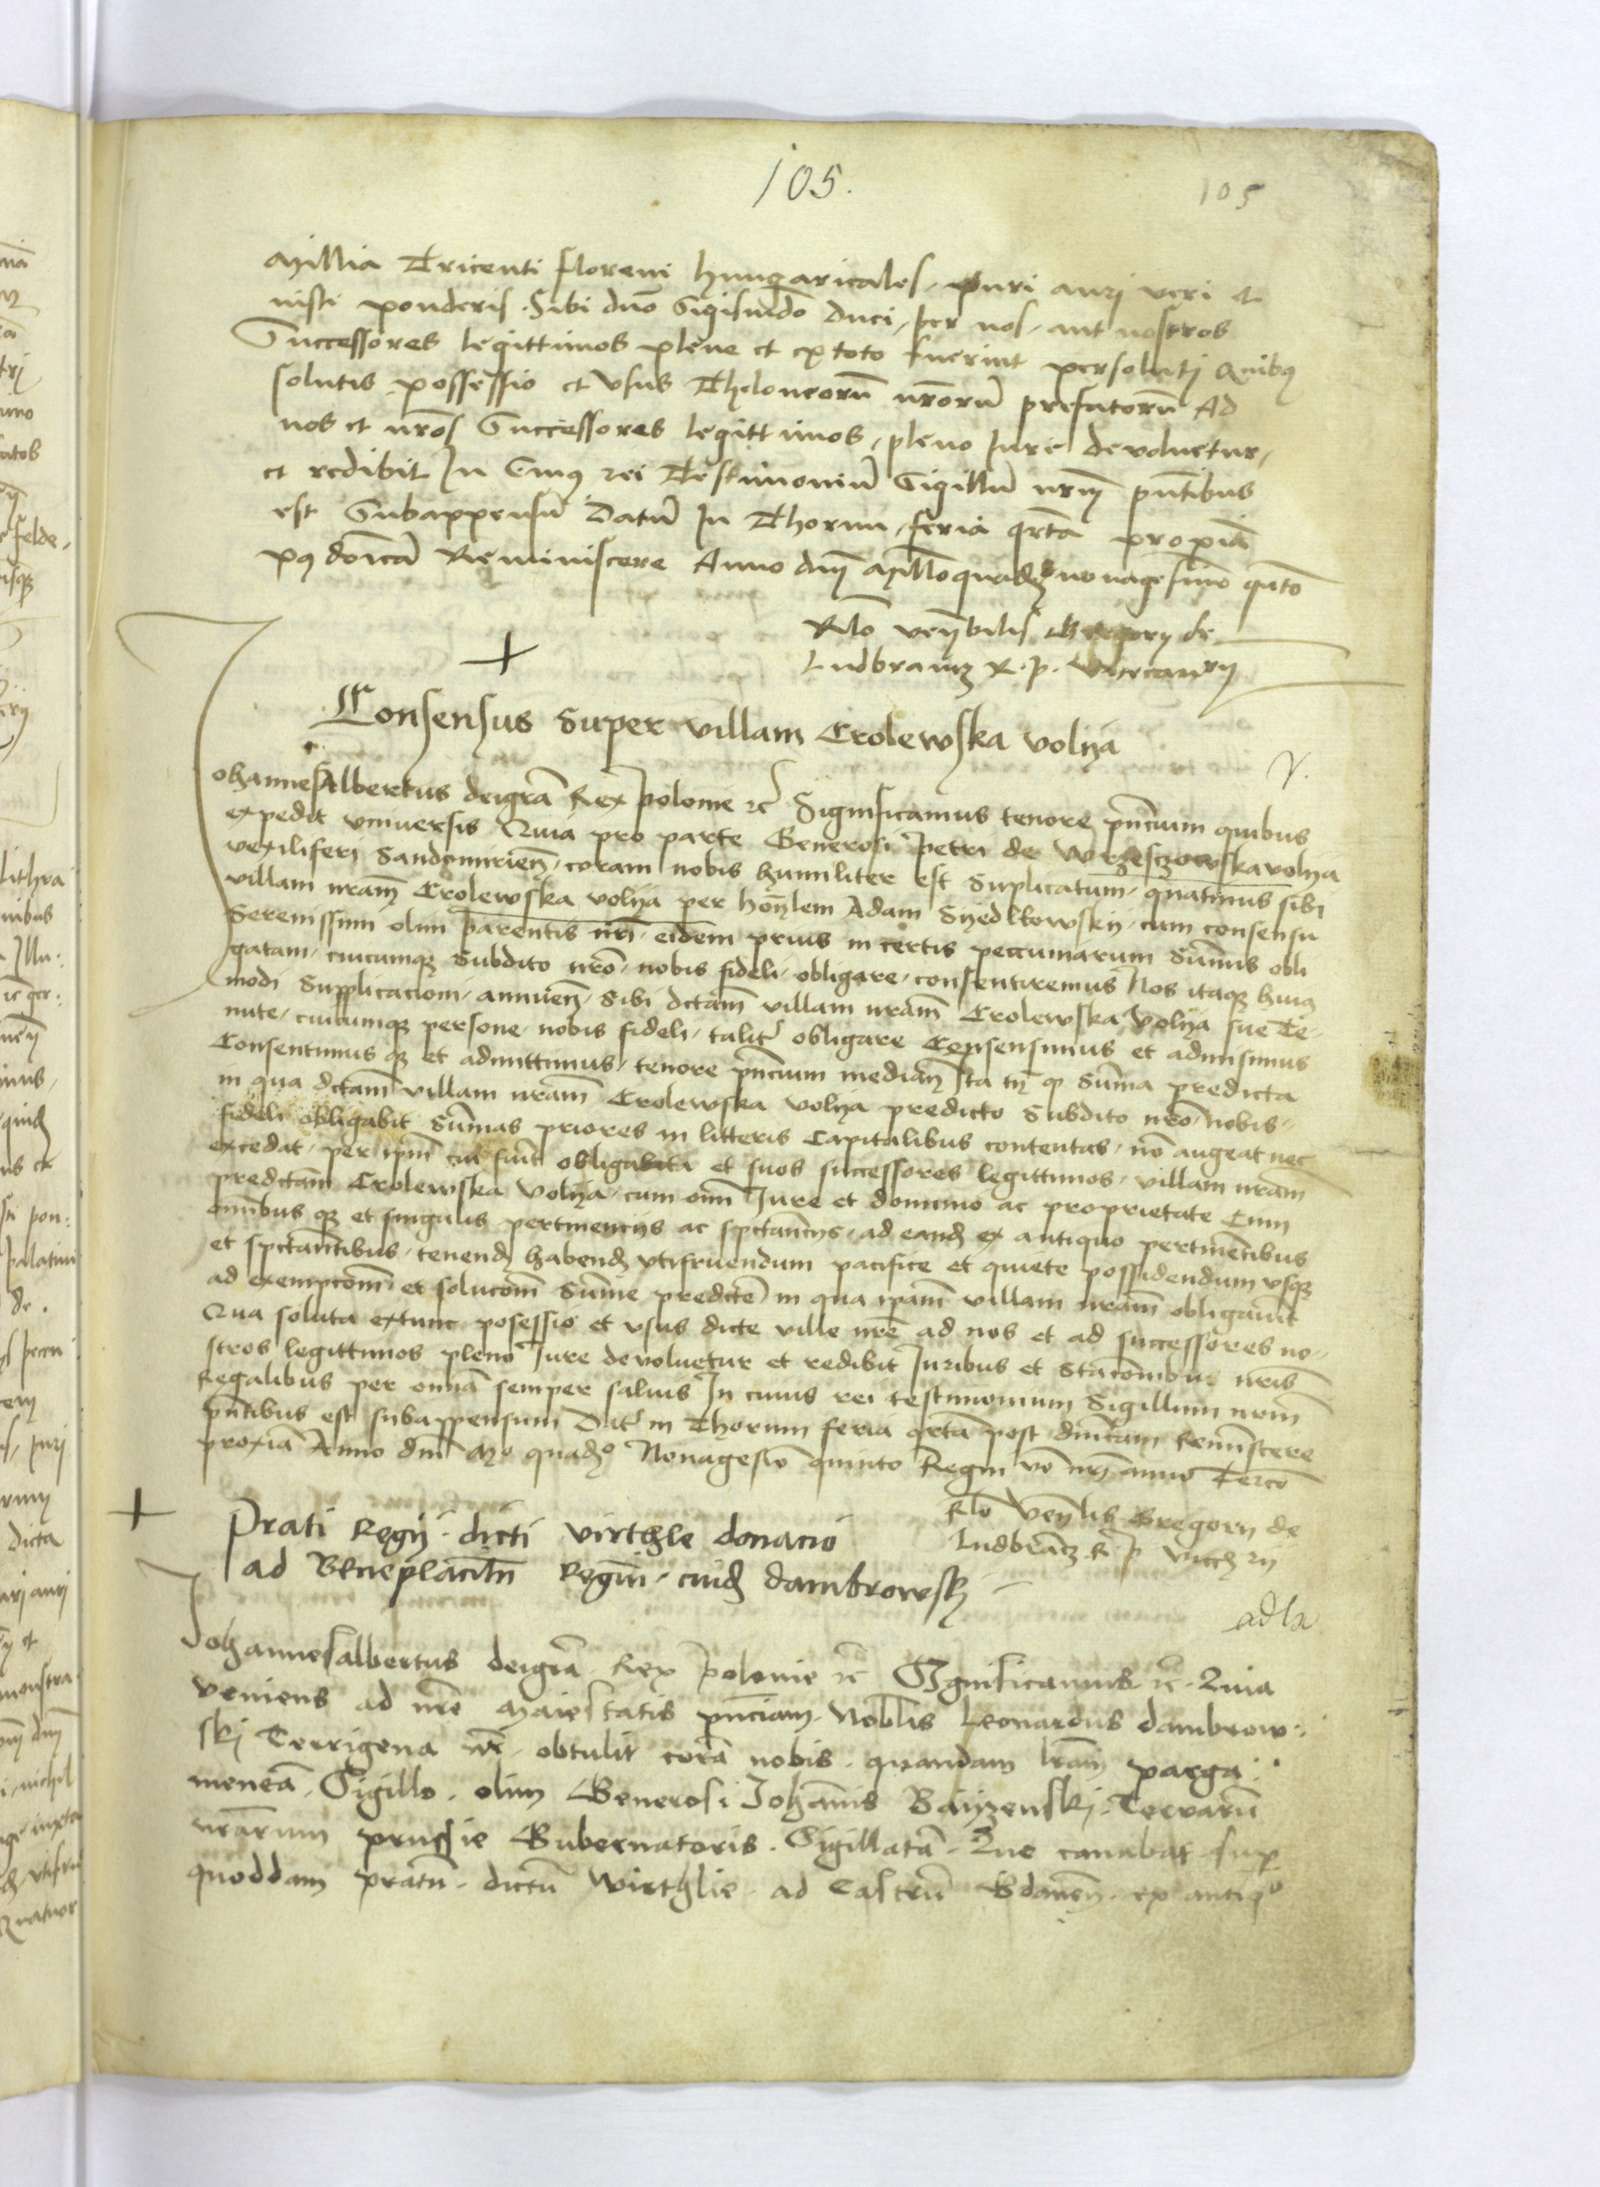 105.
105
Millia Tricenti floreni hungaricales, puri auri veri et
iusti ponderis. Sibi dno Sigismūdo Duci, per nos, aut nostros
Successores legittimos plene et ex toto fuerint persoluti Quibus
solutis possessio et Vsus Theloneorū nr̄orū prefatorū Ad
nos et nr̄os Successores legittimos, pleno Iure devoluetur,
et redibit In Cuius rei Testimoniū Sigillū nrm̄ pn̄tibus
est Subappensū Datū In Thorun, feria qrta proxīa
pq dn̄icā Reminiscere Anno dnī Millo quadrgᵒ nonagesimo qnto
Rlo venbilis Gregorij de
Ludbrancz R. p. Vicecancrij
Consensus super villam Crolewska volya
Johannes Albertus deigrā Rex Polonie rc̄ Significamus tenore pn̄cium quibus
expedit vniuersis Quia pro parte Generosi Petri de Wrzesczowska volya
vexiliferi Sandomirien̄, coram nobis humiliter est suplicatum, quatinus sibi
villam nrām̄ Crolewska volya per hon̄lem Adam Syedlkowsky, cum consensu
Serenissimi olim parentis nr̄i, eidem prius in certis peccuniarum Summis obli
gatam, cuicumqz Subdito nr̄o, nobis fideli, obligare, consentiremus Nos itaqz huiq
modi Supplicaciom, annuen̄, sibi dctam̄ villam nrām̄ Crolewska Volya sue Te-
nute, cuicumqz persone, nobis fideli, talitr̄ obligare Consensimus et admisimus
Consentimus qz et admittimus, tenore pn̄cium median̄ Ita tn̄ qd Summa predicta
in qua dctam̄ villam nrām̄ Crolewska volya predicto Subdito nr̄o nobis
fideli obligabit Summas priores in litteris Capitalibus contentas, nō augeat nec
excedat, per ipm̄ cui sint obligata et suos successores legittimos, villam nrām̄
predictam̄ Crolewska Volya, cum om̄i Iure et dominio ac proprietate Cum
omn̄ibus qz et singulis pertinencijs ac spctancijs, ad eand ex antiquo pertinentibus
et spctantibus, tenend habend vtifruendum pacifice et quiete possidendum vsqz
ad exempcōm̄ et solucōm̄ Summe predicte in qua ipam̄ villam nrām̄ obligauit
Qua soluta extunc posessio et vsus dicte ville nr̄e ad nos et ad successores no-
stros legittimos pleno Iure devoluetur et redibit Iuribus et Stacōnibus nr̄is
Regalibus per omnīa semper saluis In cuius rei testimonium Sigillum nrm̄
pn̄tibus est subappensum Datr̄ in Thorun feria qrta post dn̄icam Reminiscere
proxīa Anno dnī Mo quadᵒ Nonagesīo quinto Regni vo nrī anno Tercō
Rlo Venlis Gregorij de
Ludbrācz R P Vicecrij
Prati Regij dicti virthgle donacio
ad Beneplacitū Regiū, cuid dambrowsky
Johannes albertus deigrā Rex Polonie rc̄ Significamus rc̄. Quia
veniens ad nr̄e Maiestatis pn̄ciam Nobilis Leonardus dambrow:
ski Terrigena nr̄, obtulit corā nobis quandam lram̄ parga:
meneā, Sigillo olim Generosi Johannis Bayzenski, Terrarū
nrārum prussie Gubernatoris. Sigillatā. Que canabat sup
quoddam pratū dictū Wirthglie ad Castrū Gdanen̄, ex antiqᵒ